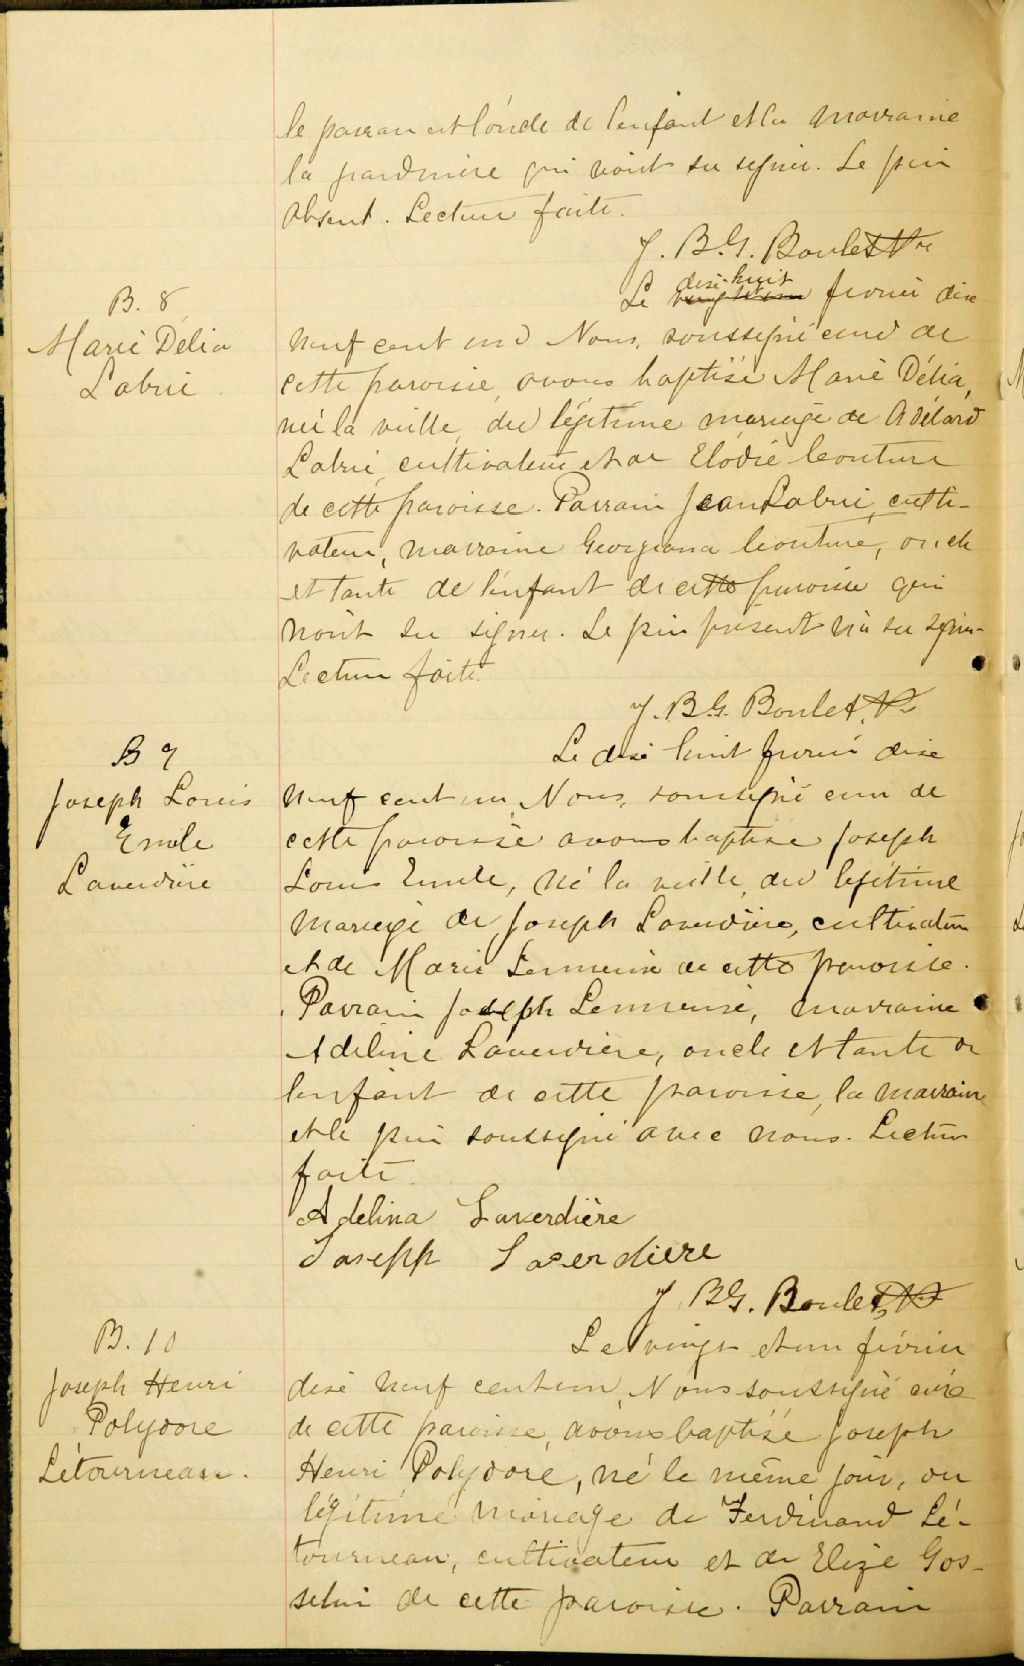 le parrain est l'oncle de l'enfant et la marraine
la grandmère qui n'ont su signer. Le père
absent. Lecture faite.
J. B. G. Boulet Ptre
B. 8
Marie Délia
Labrie
dixe-huit
Le février dixe
neuf cent un Nous, soussigné curé de
cette paroisse, avons baptisé Marie Délia,
née la veille, du légitime mariage de Adélard
Labrie, cultivateur et de Elodie Couture
de cette paroisse. Parrain Jean Labrie, culti-
vateur, marraine Georgiana Couture, oncle
et tante de l'enfant de cette paroisse qui
n'ont su signer. Le père présent n'a su signer.
Lecture faite.
J. B. G. Boulet Ptre
B 9
Joseph Louis
Emile
Laverdière
Le dixe huit février dixe
neuf cent un, Nous, soussigné curé de
cette paroisse avons baptisé Joseph
Louis Emile, né la veille, du légitime
mariage de Joseph Laverdière, cultivateur
et de Marie Lemieux de cette paroisse.
Parrain Joseph Lemieux, marraine
Adeline Laverdière, oncle et tante de
l'enfant de cette paroisse, la marraine
et le père soussigné avec nous. Lecture
faite.
Adelina Laverdière
Joseph Laverdiere
J. B. G. Boulet Ptre
B. 10
Joseph Henri
Polydore
Létourneau.
Le vingt et un février
dixe neuf cent un, Nous soussigné curé
de cette paroisse, avons baptisé Joseph
Henri Polydore, né le même jour, du
légitime mariage de Ferdinand Lé-
tourneau, cultivateur et de Elize Gos-
selin de cette paroisse. Parrain